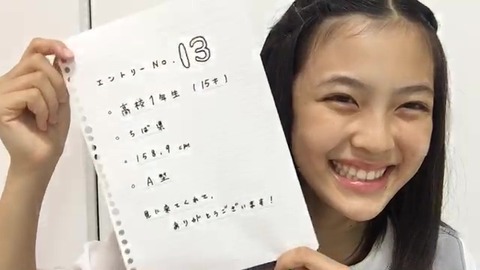 エントリーNo.13
。高校1年生 (15才)
。ちば県
。158.9cm
。A型
見に来てくれて、
ありがとうございます!